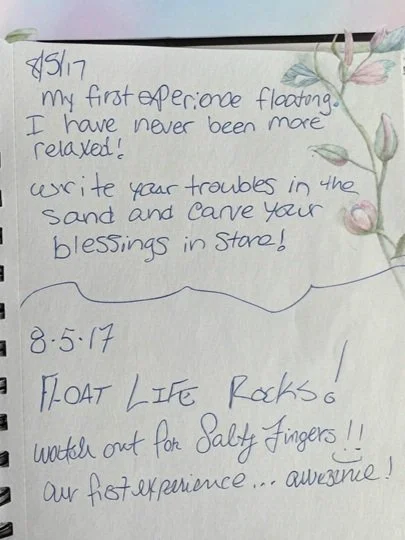 8/5/17
my first experience floating.
I have never been more
relaxed!
write your troubles in the
sand and carve your
blessings in Stone!
8.5.17
FLOAT LIFE Rocks!
watch out for Salty Fingers!!
our first experience... awesome!